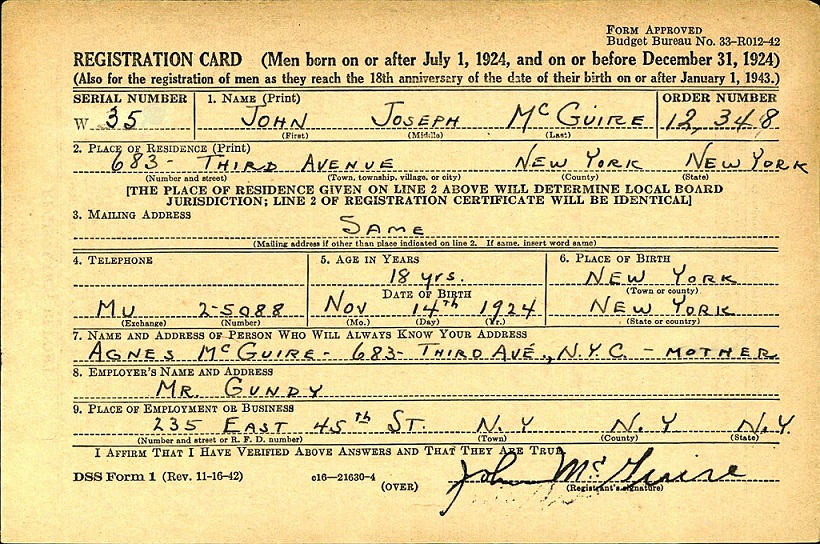 FORM APPROVED
Budget Bureau No. 33-R012-42
REGISTRATION CARD (Men born on or after July 1, 1924, and on or before December 31, 1924)
(Also for the registration of men as they reach the 18th anniversary of the date of their birth on or after January 1, 1943.)
SERIAL NUMBER 1. NAME (Print) ORDER NUMBER
W 35 JOHN JOSEPH McGUIRE 12,348
(First) (Middle) (Last)
2. PLACE OF RESIDENCE (Print)
683- THIRD AVENUE NEW YORK NEW YORK
(Number and street) (Town, township, village, or city) (County) (State)
[THE PLACE OF RESIDENCE GIVEN ON LINE 2 ABOVE WILL DETERMINE LOCAL BOARD
JURISDICTION; LINE 2 OF REGISTRATION CERTIFICATE WILL BE IDENTICAL]
3. MAILING ADDRESS
SAME
(Mailing address if other than place indicated on line 2. If same, insert word same)
4. TELEPHONE 5. AGE IN YEARS 6. PLACE OF BIRTH
18 yrs. NEW YORK
DATE OF BIRTH (Town or county)
MU 2-5088 NOV 14th 1924 NEW YORK
(Exchange) (Number) (Mo.) (Day) (Yr.) (State or country)
7. NAME AND ADDRESS OF PERSON WHO WILL ALWAYS KNOW YOUR ADDRESS
AGNES McGUIRE- 683- THIRD AVE., N.Y.C. - MOTHER
8. EMPLOYER'S NAME AND ADDRESS
MR. GUNDY
9. PLACE OF EMPLOYMENT OR BUSINESS
235 EAST 45th ST. N.Y N.Y N.Y.
(Number and street or R. F. D. number) (Town) (County) (State)
I AFFIRM THAT I HAVE VERIFIED ABOVE ANSWERS AND THAT THEY ARE TRUE.
DSS Form 1 (Rev. 11-16-42) c16-21630-4 John McGuire
(OVER) (Registrant's signature)